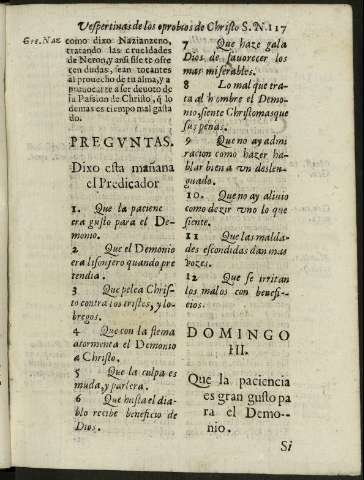 Vespertinas de los oprobios de Christo S. N. 117
Gre. Naz
como dixo Nazianzeno,
tratando las crueldades
de Neron, y ansi si se ofre
cen dudas, sean tocantes
al prouecho de tu alma, y a
prouocarte a ser deuoto de
la Passion de Christo, q̃ lo
demas es tiempo mal gasta
do.
PREGVNTAS.
Dixo esta mañana
el Predicador
1. Que la pacienc
era gusto para el De-
monio.
2 Que el Demonio
era lisonjero quando pre
tendia.
3 Que pelea Chris-
to contra los tristes, y lo-
bregos.
4 Que con la flema
atormenta el Demonio
a Christo.
5 Que la culpa es
muda, y parlera.
6 Que hasta el dia-
blo recibe beneficio de
Dios.
7 Que haze gala
Dios de fauorecer los
mas miserables.
8 Lo mal que tra-
ta al hombre el Demo-
nio, siente Christo mas que
sus penas.
9 Que no ay admi
racion como hazer ha-
blar bien a vn deslen-
guado.
10. Que no ay aliuio
como dezir vno lo que
siente.
11 Que las malda-
des escondidas dan mas
vozes.
12 Que se irritan
los malos con benefi-
cios.
DOMINGO
III.
Que la paciencia
es gran gusto pa
ra el Demo--
nio.
Si